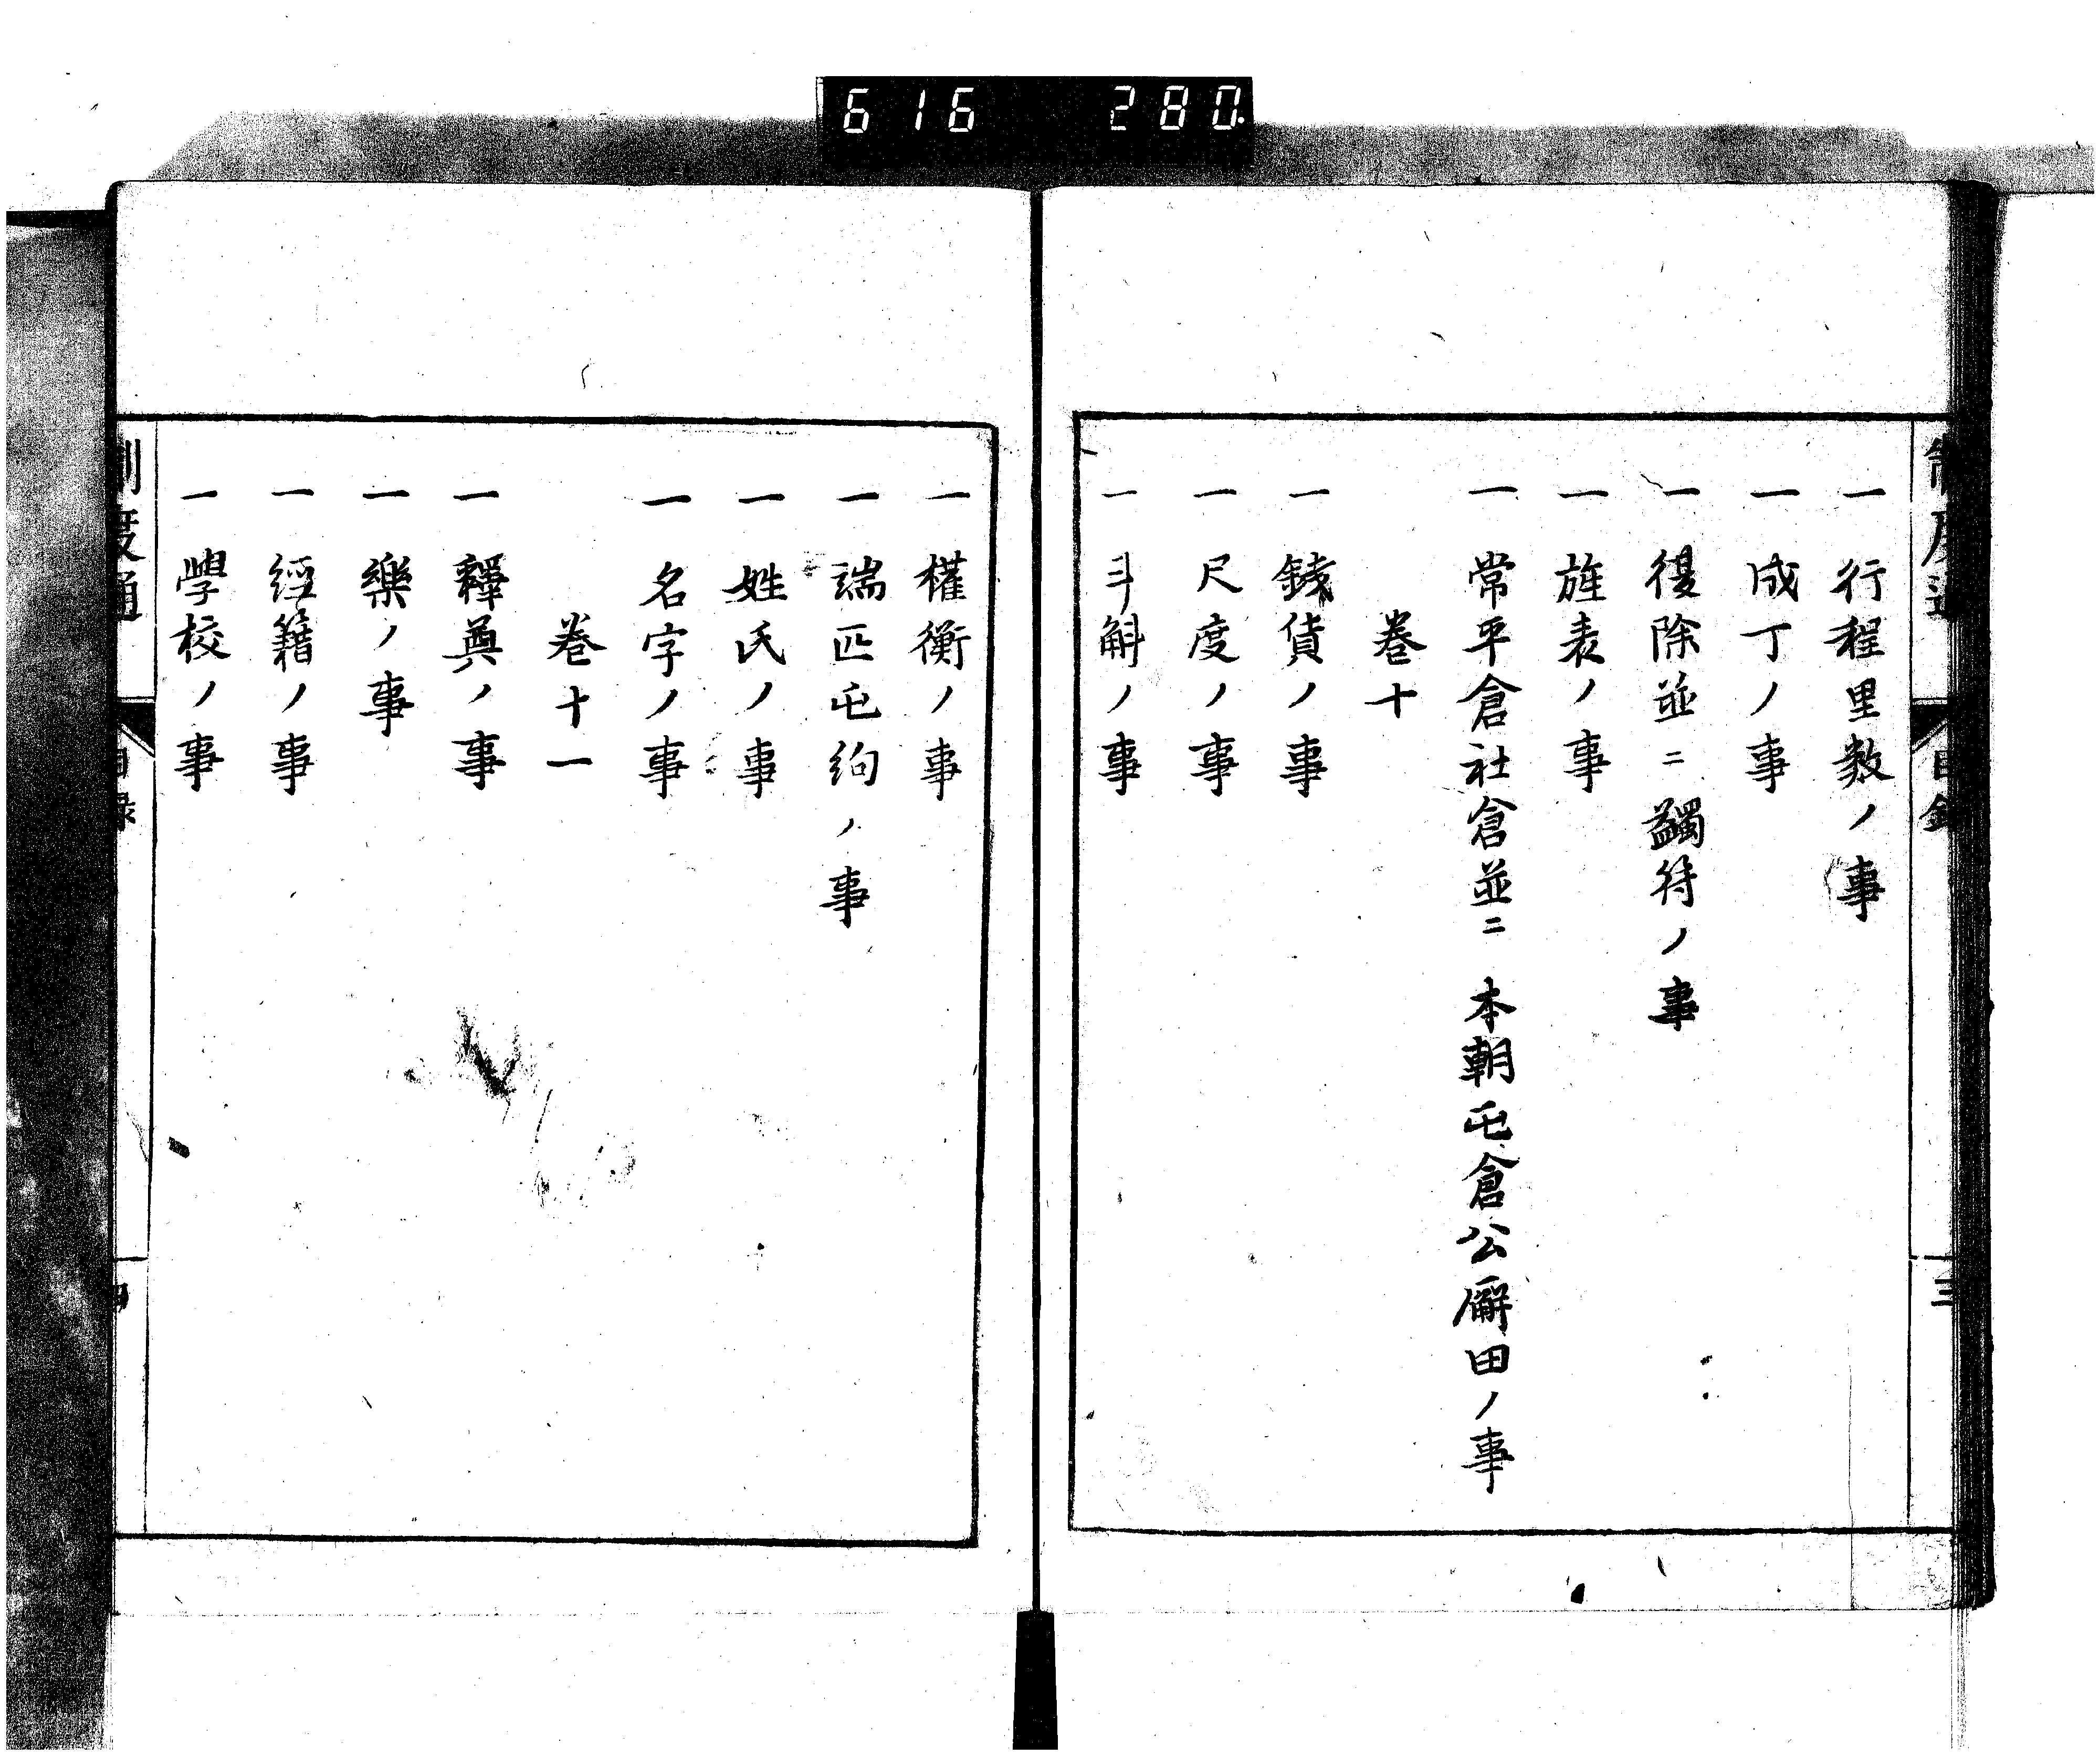 616 280
一 行程里数ノ事
一 成丁ノ事
一 復除並ニ蠲符ノ事
一 旌表ノ事
一 常平倉社倉並ニ 本朝屯倉公廨田ノ事
巻十
一 錢貨ノ事
一 尺度ノ事
一 斗斛ノ事
一 權衡ノ事
一 端匹屯絇ノ事
一 姓氏ノ事
一 名字ノ事
巻十一
一 釋奠ノ事
一 樂ノ事
一 經籍ノ事
一 學校ノ事
制度通 目録